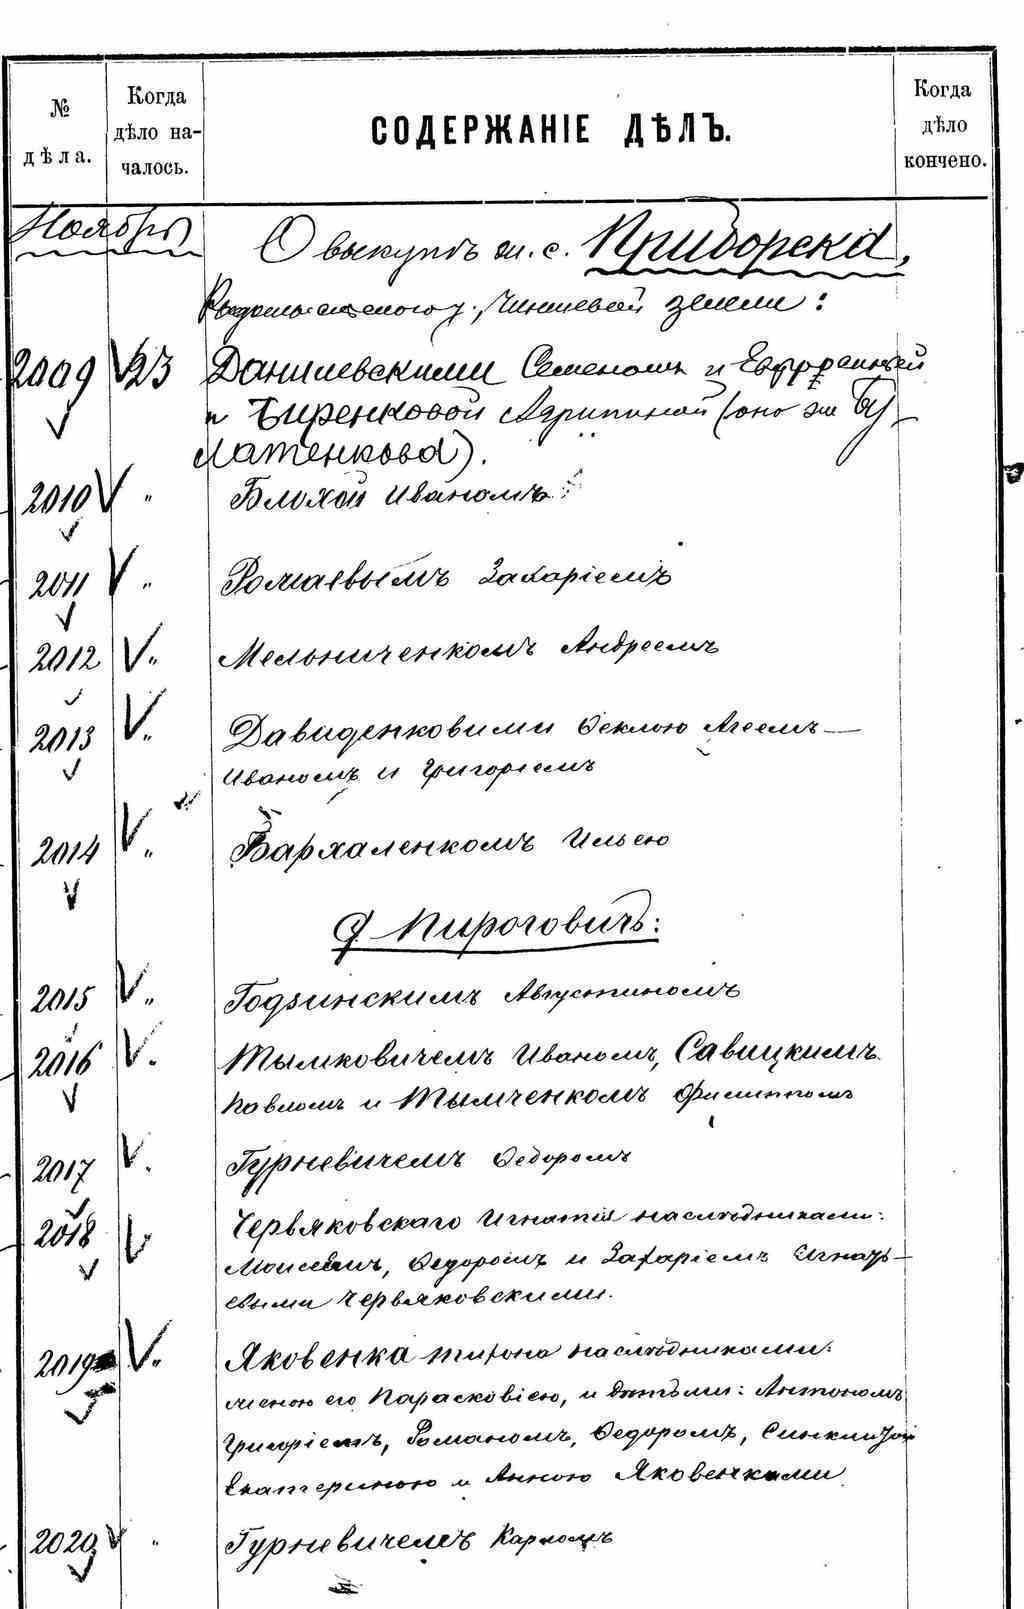 № дѣла.
Когда дѣло началось.
СОДЕРЖАНІЕ ДѢЛЪ.
Когда дѣло кончено.
Ноябрь
О выкупѣ м. с. Приборска,
Радомысльскаго у., Чиншевой земли:
2009 23 Данилевскими Семеномъ и Евфросиніей
и Биренковой Агрипиной (оно же Бу-
латенкова).
2010 " Блохой Иваномъ
2011 " Ромаевымъ Захаріемъ
2012 " Мельниченкомъ Андреемъ
2013 " Давиденковими Ѳеклою Агеемъ
Иваномъ и Григоріемъ
2014 " Бархаленкомъ Ильею
д Пироговичъ:
2015 " Годзинскимъ Августиномъ
2016 " Тымковичемъ Иваномъ, Савицкимъ
Павломъ и Тымченкомъ Филиппомъ
2017 " Гурневичемъ Ѳедоромъ
2018 Червяковскаго Игнатія наслѣдниками:
Моисеемъ, Ѳедоромъ и Захаріемъ Игнать-
евыми Червяковскими.
2019 " Яковенка Тихона наслѣдниками:
женою его Парасковіею, и дѣтьми: Антономъ
Григоріемъ, Романомъ, Ѳедоромъ,
Екатериною и Анною Яковенками
2020 " Гурневичемъ Карпомъ